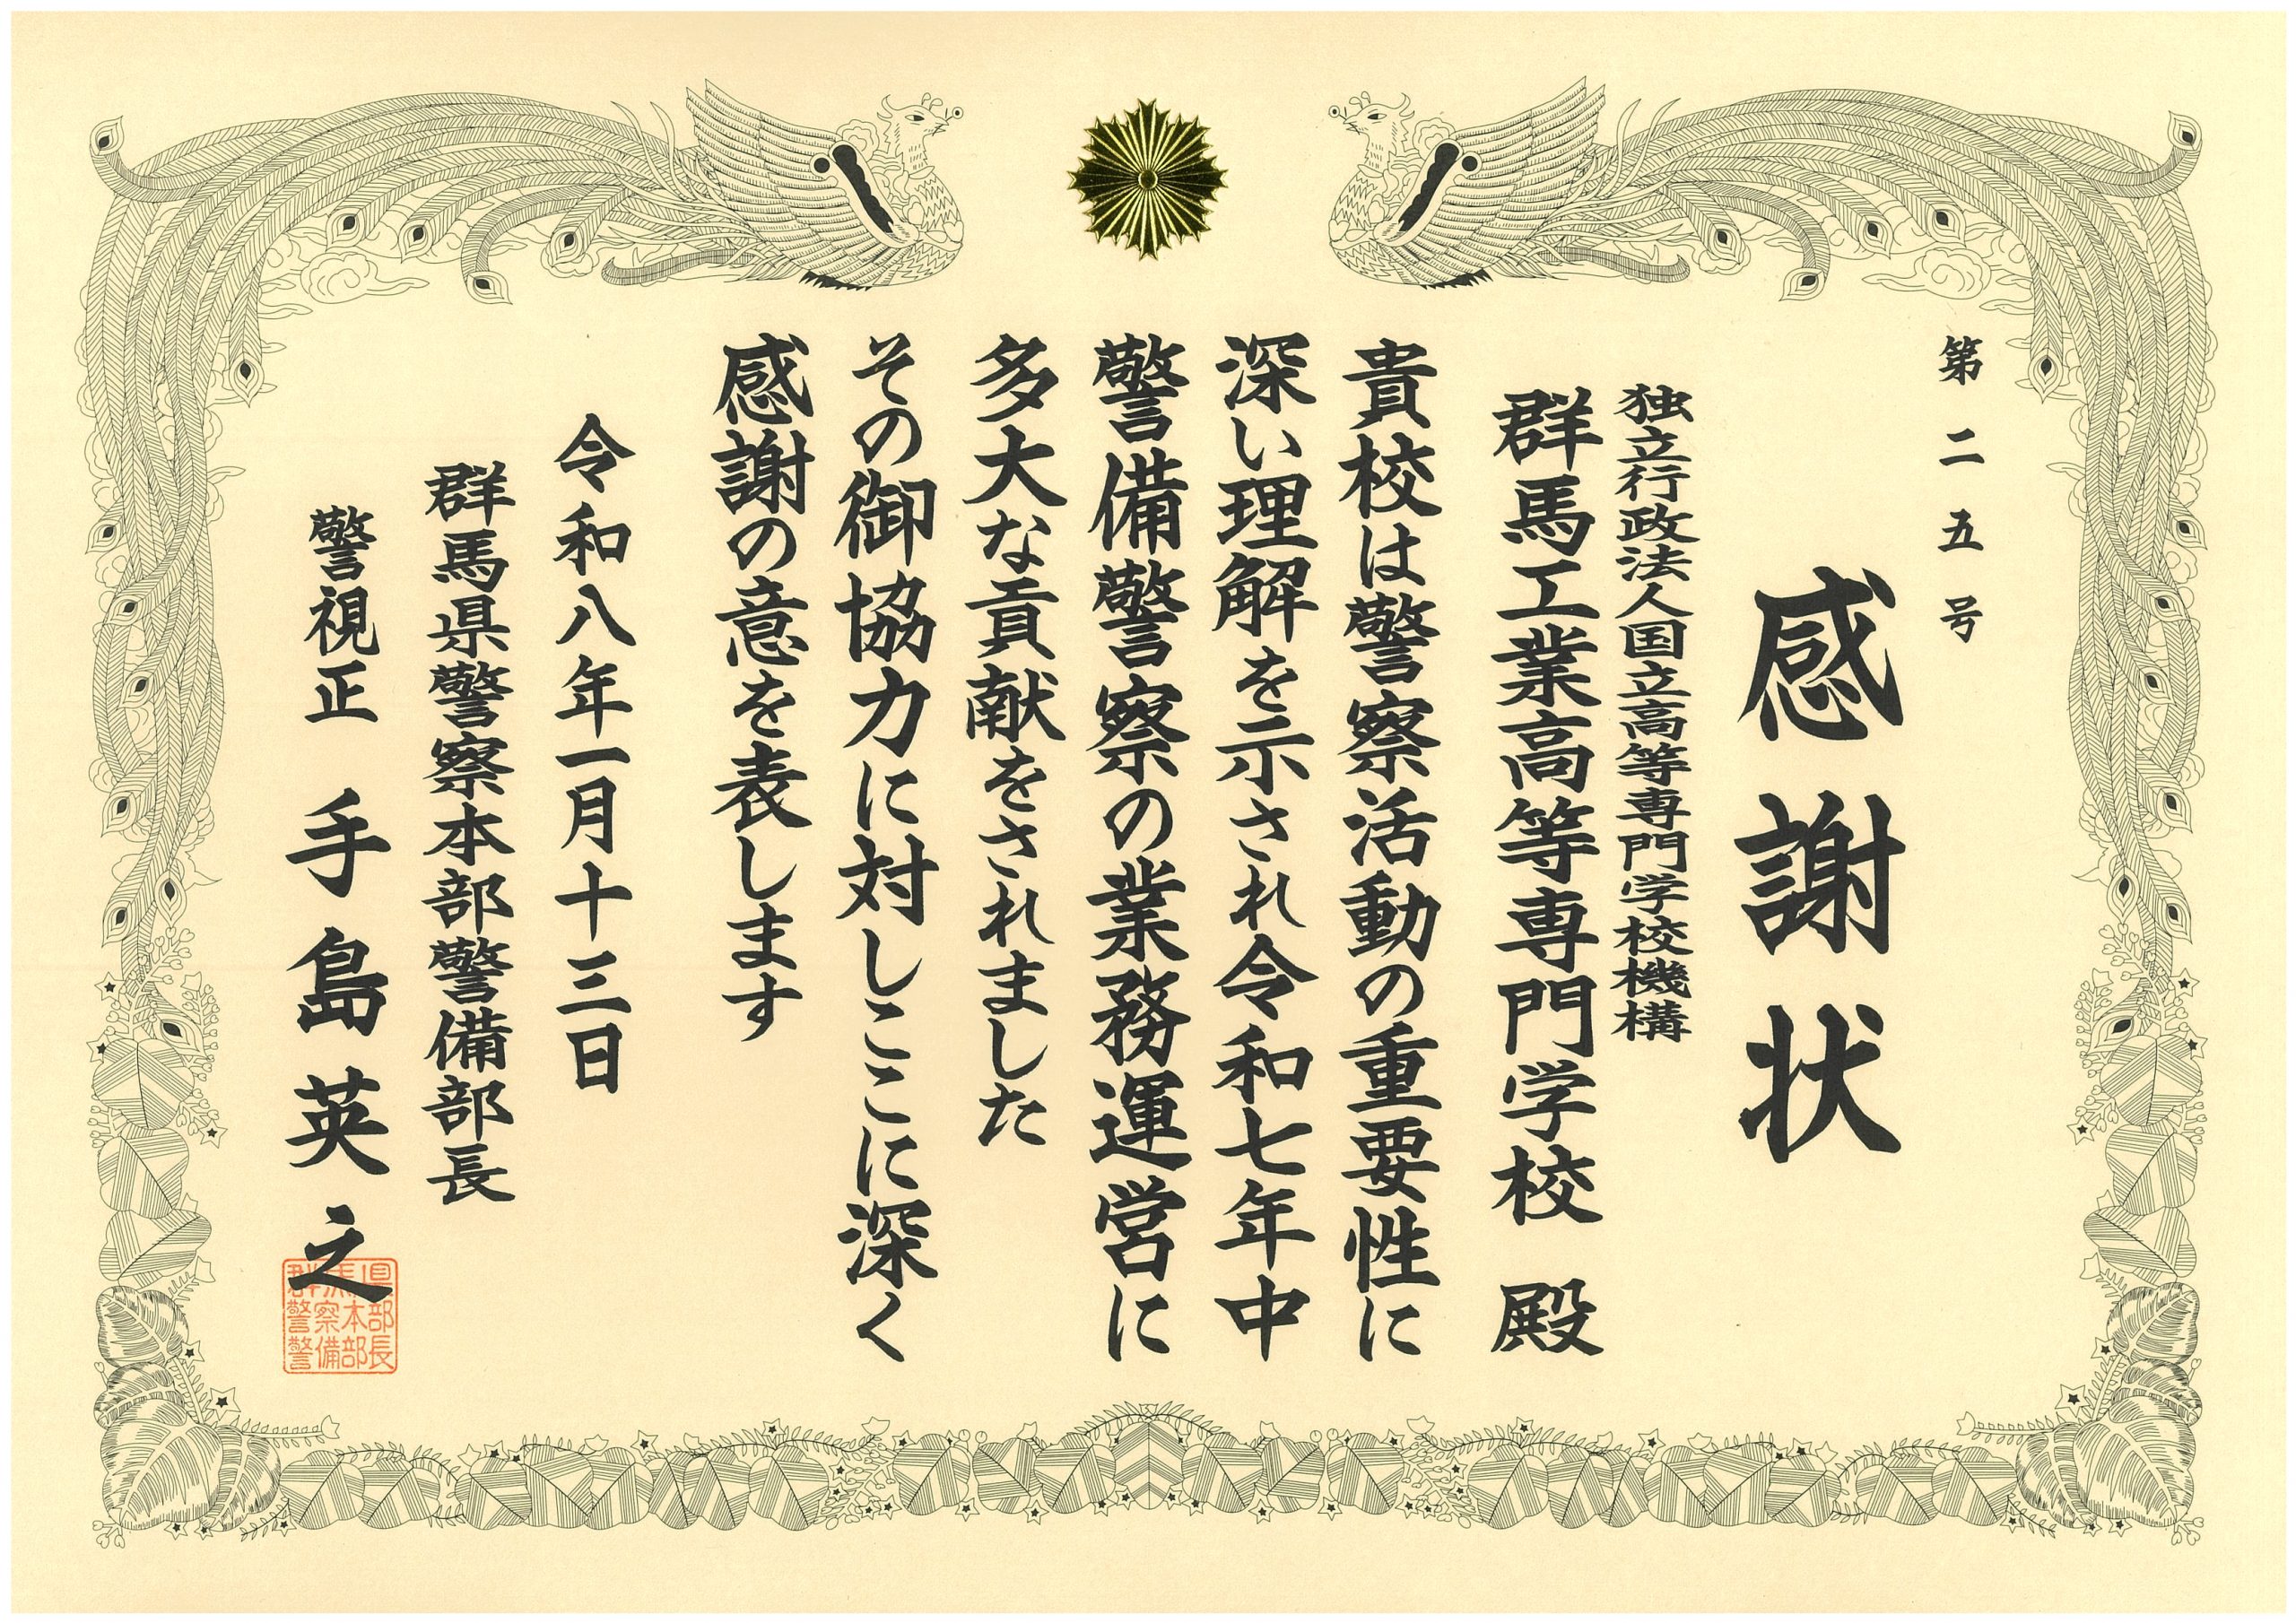 第二五号
感謝状
独立行政法人国立高等専門学校機構
群馬工業高等専門学校 殿
貴校は警察活動の重要性に
深い理解を示され令和七年中
警備警察の業務運営に
多大な貢献をされました
その御協力に対しここに深く
感謝の意を表します
令和八年一月十三日
群馬県警察本部警備部長
警視正 手島英之
群馬県
警察本部
警備部長